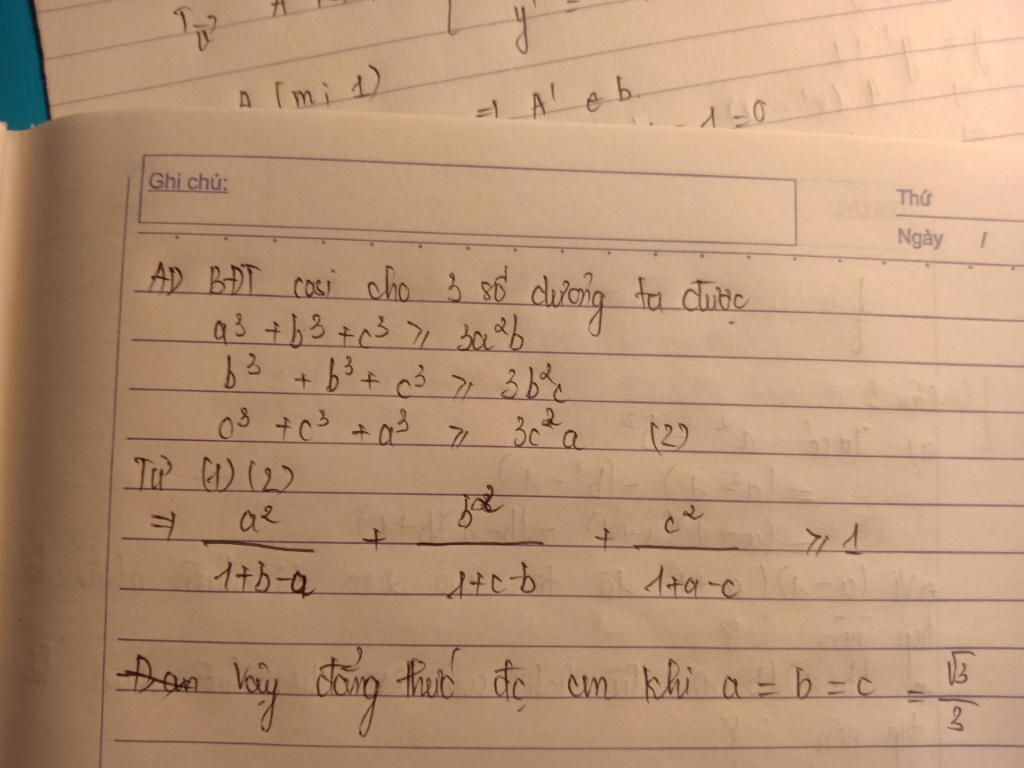 A
T_v⃗
y' =
A (m; 1)
=> A' ∈ b.
- 1 = 0
Ghi chú:
Thứ
Ngày /
AD BĐT cosi cho 3 số dương ta được
a³ + b³ + c³ ≥ 3a²b
b³ + b³ + c³ ≥ 3b²c
c³ + c³ + a³ ≥ 3c²a (2)
Từ (1) (2)
=> a²/(1+b-a) + b²/(1+c-b) + c²/(1+a-c) ≥ 1
Vậy đẳng thức đc cm khi a = b = c = √3/3